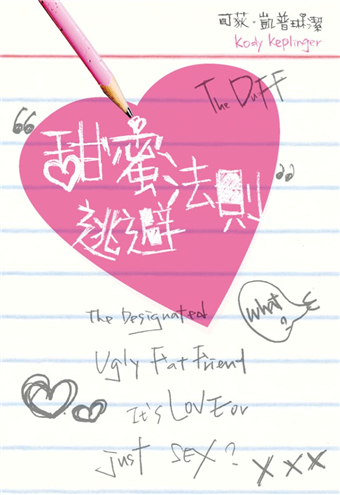 可荻·凱普琳潔
Kody Keplinger
The DUFF
“甜蜜法則”
逃避
The Designated
What?
Ugly Fat Friend
It's LOVE or
Just SEX?
XXX